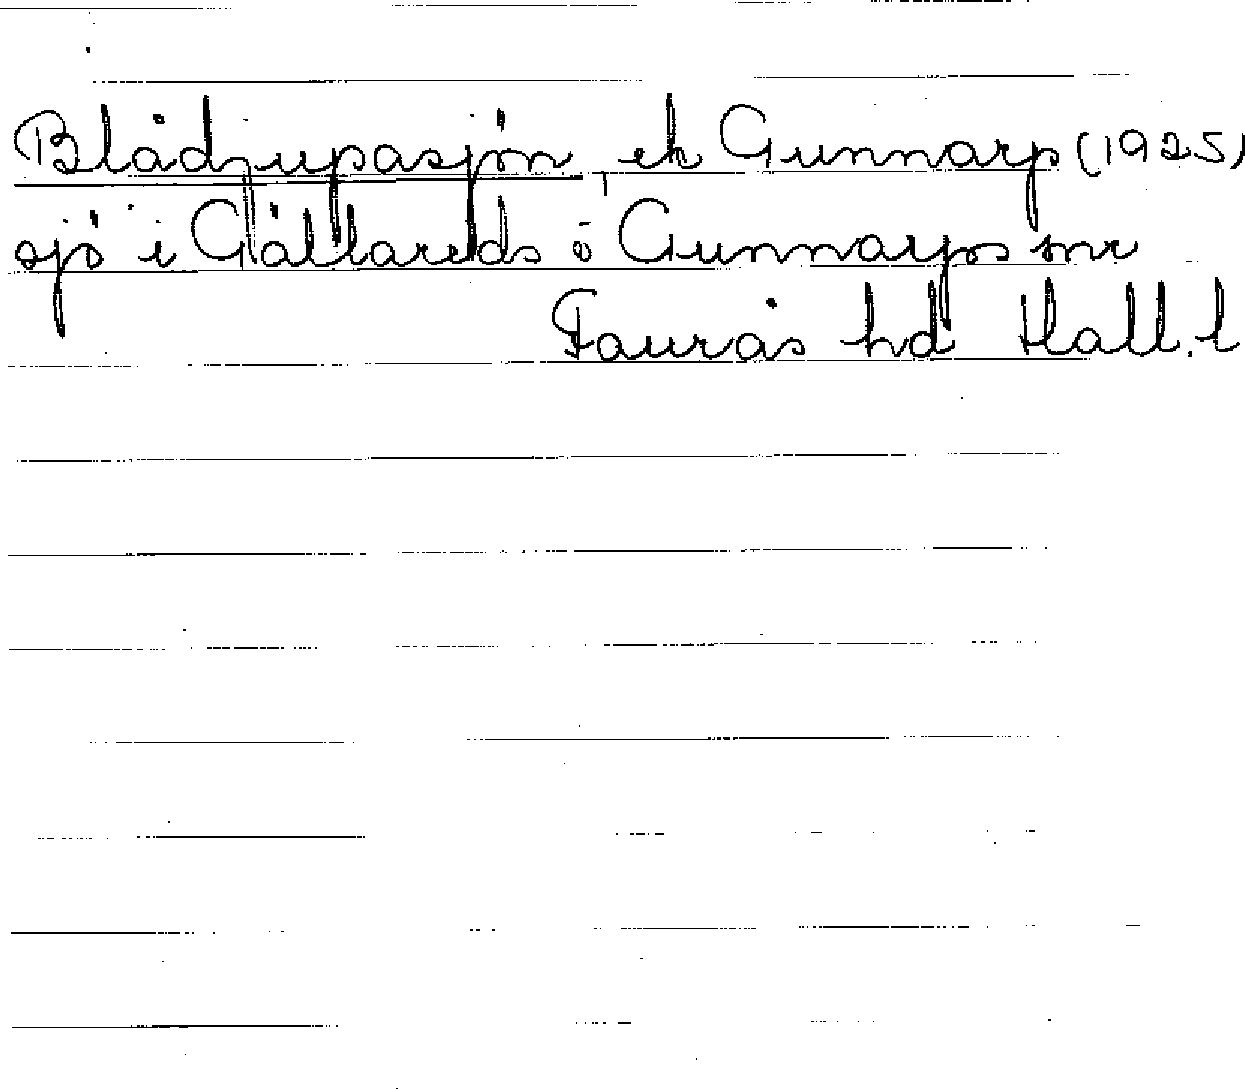 Blådjupasjön, ek Gunnarp (1925)
sjö i Gällareds o Gunnarps snr
Faurås hd Hall. l